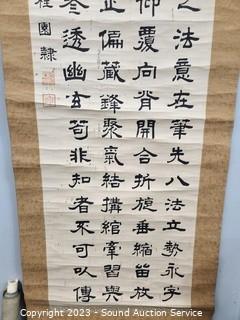 之法意在筆先八法立勢永字
仰覆向背開合折旋垂縮放
正偏藏鋒聚氣結搆綰牽間與
透幽玄苟非知者不可以傳
園隸
Copyright 2023 - Sound Auction Service